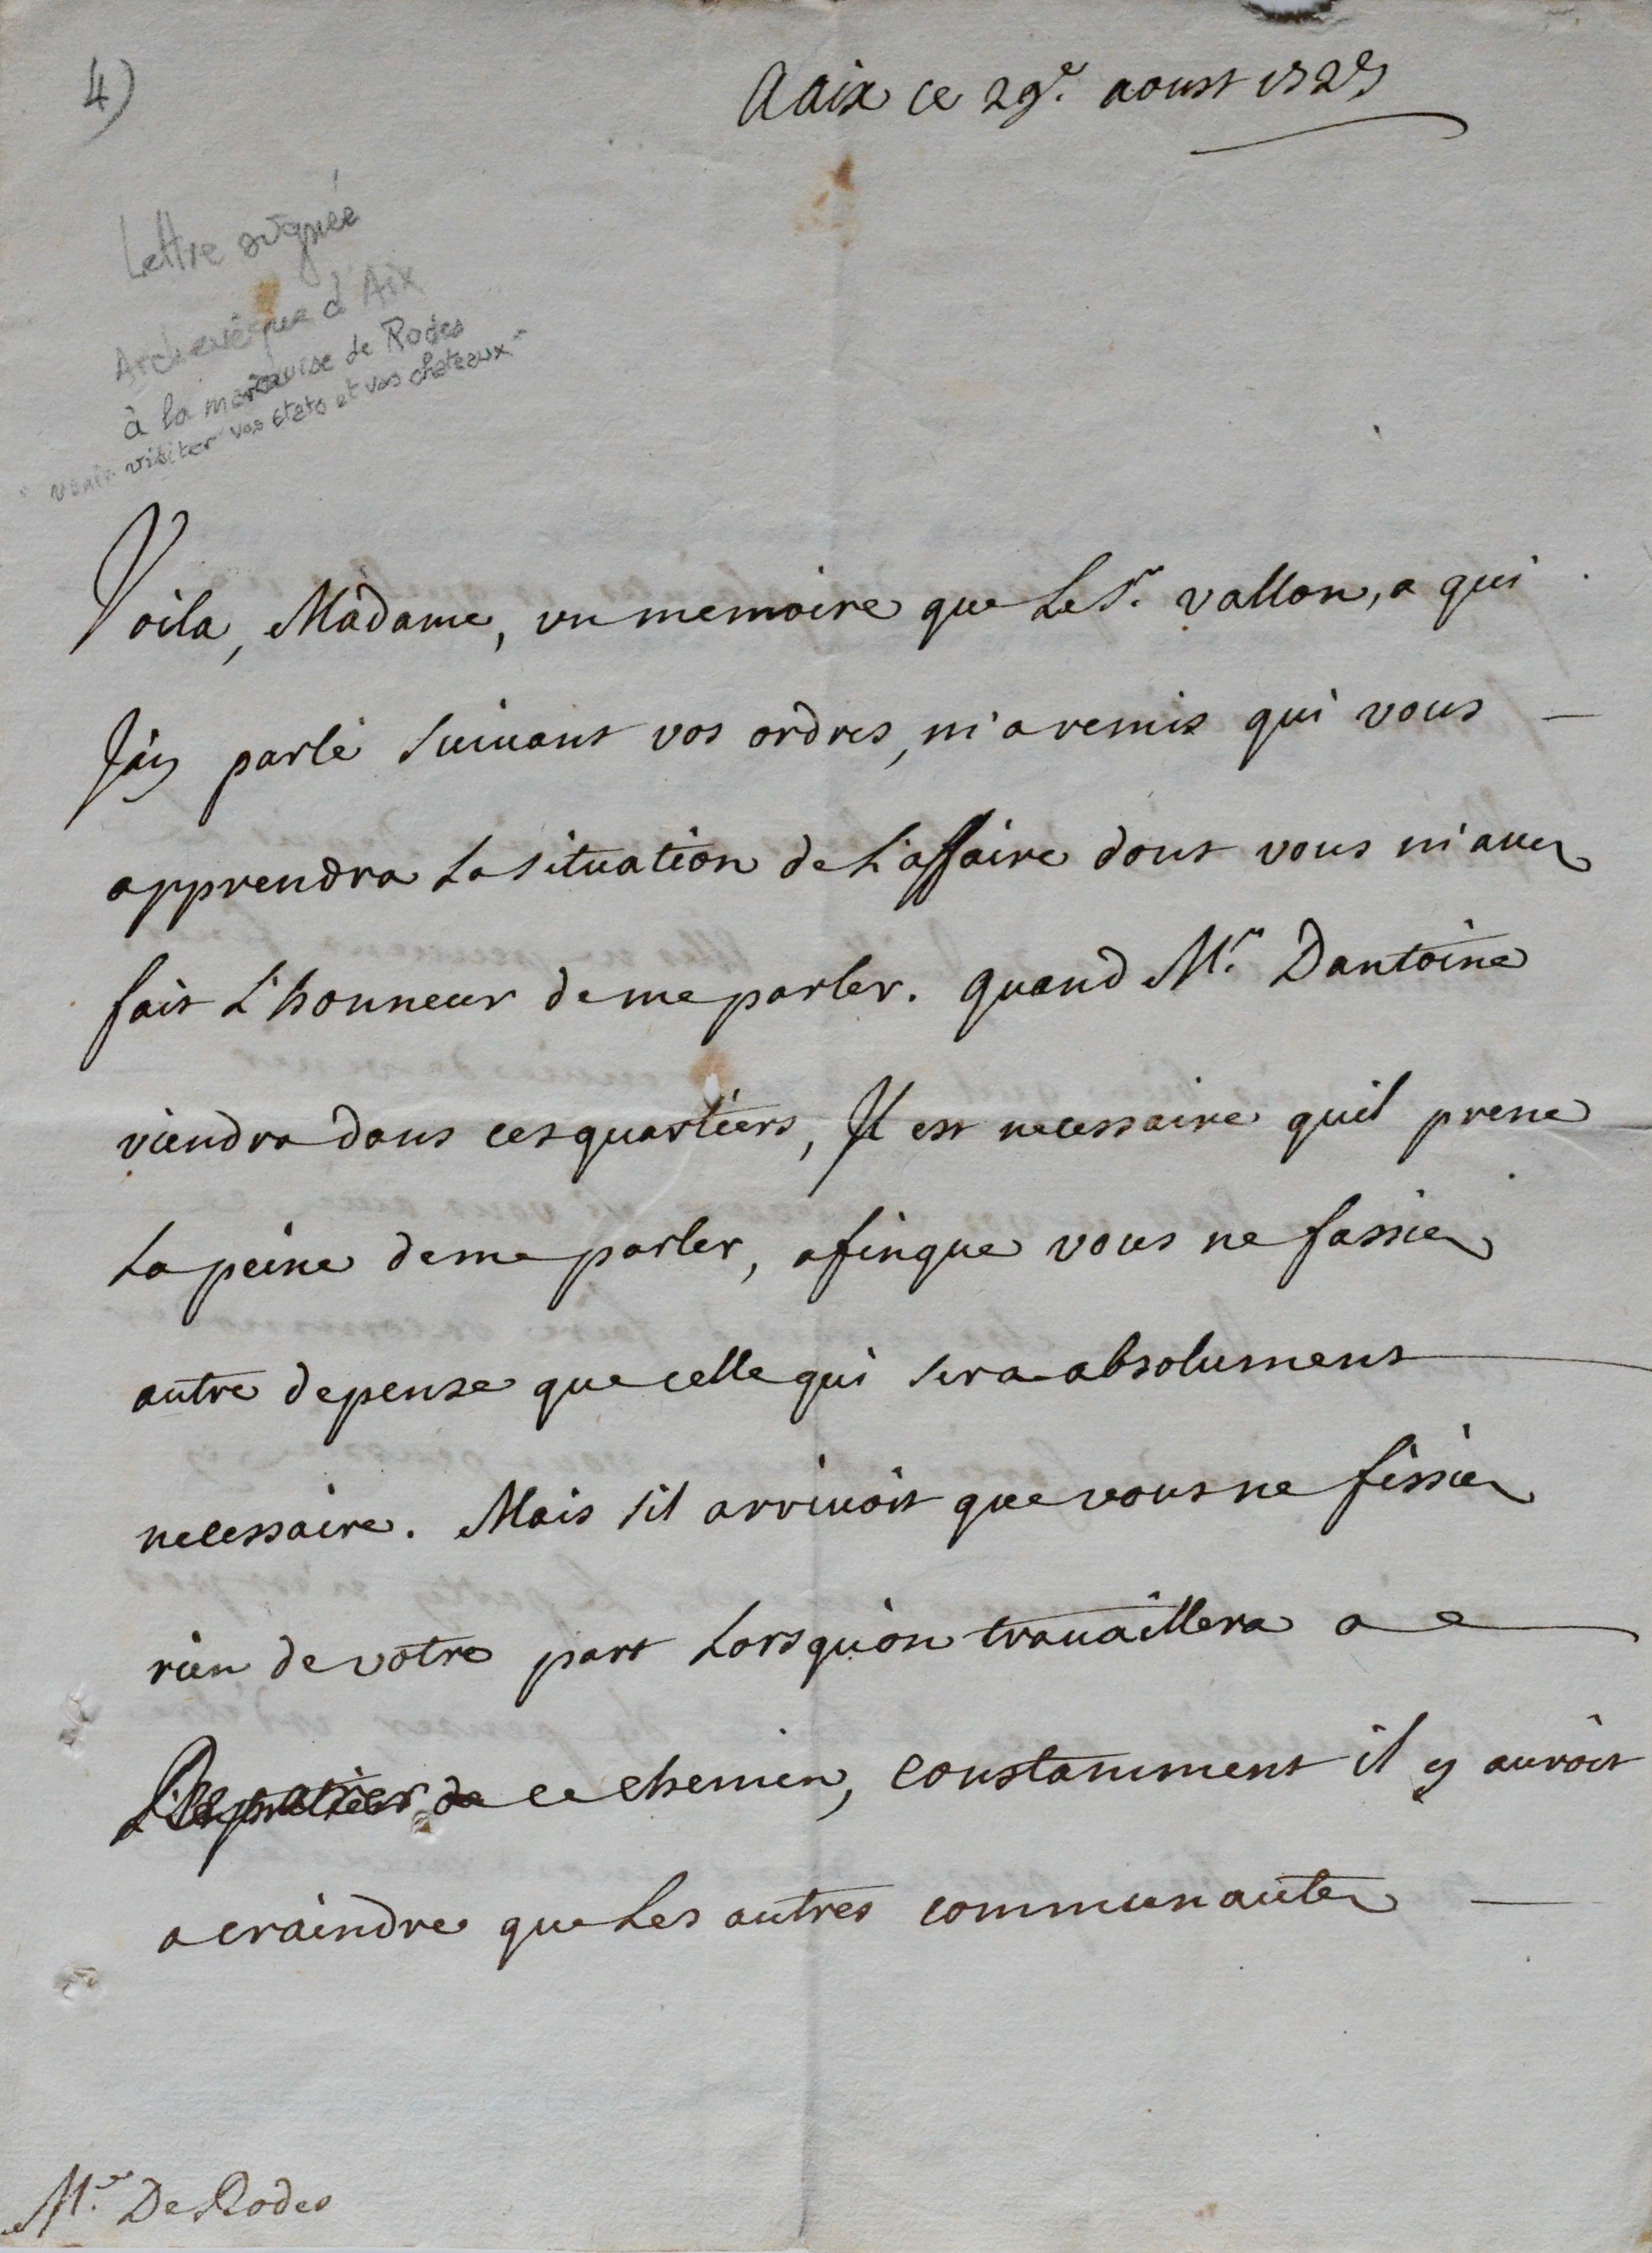 4)
A aix ce 29e. aoust 1727
Lettre signée
Archevêque d'Aix
à la marquise de Rodes
"venir visiter vos états et vos chateaux"
Voila, Madame, un memoire que Le Sr. vallon, a qui
J'ay parlé suivant vos ordres, m'a remis qui vous
apprendra La situation de L'affaire dont vous m'avez
fait L'honneur de me parler. quand Mr. Dantoine
viendra dans ces quartiers, Il est necessaire quil prene
La peine de me parler, afin que vous ne fassiez
autre depense que celle qui sera absolument
necessaire. Mais s'il arrivoit que vous ne fissiez
rien de votre part Lorsqu'on travaillera a
ce chemin, constamment il y auroit
a craindre que Les autres communautez
Me. De Rodes